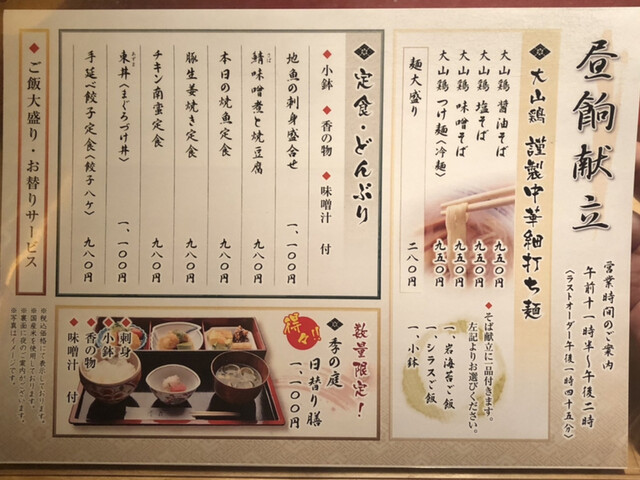 昼餉献立
営業時間のご案内
午前十一時半〜午後二時
(ラストオーダー午後一時四十五分)
◆大山鶏 謹製中華細打ち麺
大山鶏 醤油そば 九五〇円
大山鶏 塩そば 九五〇円
大山鶏 味噌そば 九五〇円
大山鶏 つけ麺(冷麺) 九五〇円
麺大盛り 二八〇円
◆そば献立に一品付きます。
左記よりお選びください。
一、岩海苔ご飯
一、シラスご飯
一、小鉢
◆定食・どんぶり
◆小鉢 ◆香の物 ◆味噌汁 付
地魚の刺身盛合せ 一、一〇〇円
鯖味噌煮と焼豆腐 九八〇円
さば
本日の焼魚定食 九八〇円
豚生姜焼き定食 九八〇円
チキン南蛮定食 九八〇円
東丼(まぐろづけ丼) 一、一〇〇円
あずま
手延べ餃子定食(餃子八ケ) 九八〇円
数量限定!
得々!!
◆季の庭
日替り膳
一、一〇〇円
◆刺身
◆小鉢
◆香の物
◆味噌汁 付
◆ご飯大盛り・お替りサービス
※税込価格にて表示しております。
※国産米を使用しております。
※裏面に夜のご案内がございます。
※写真はイメージです。